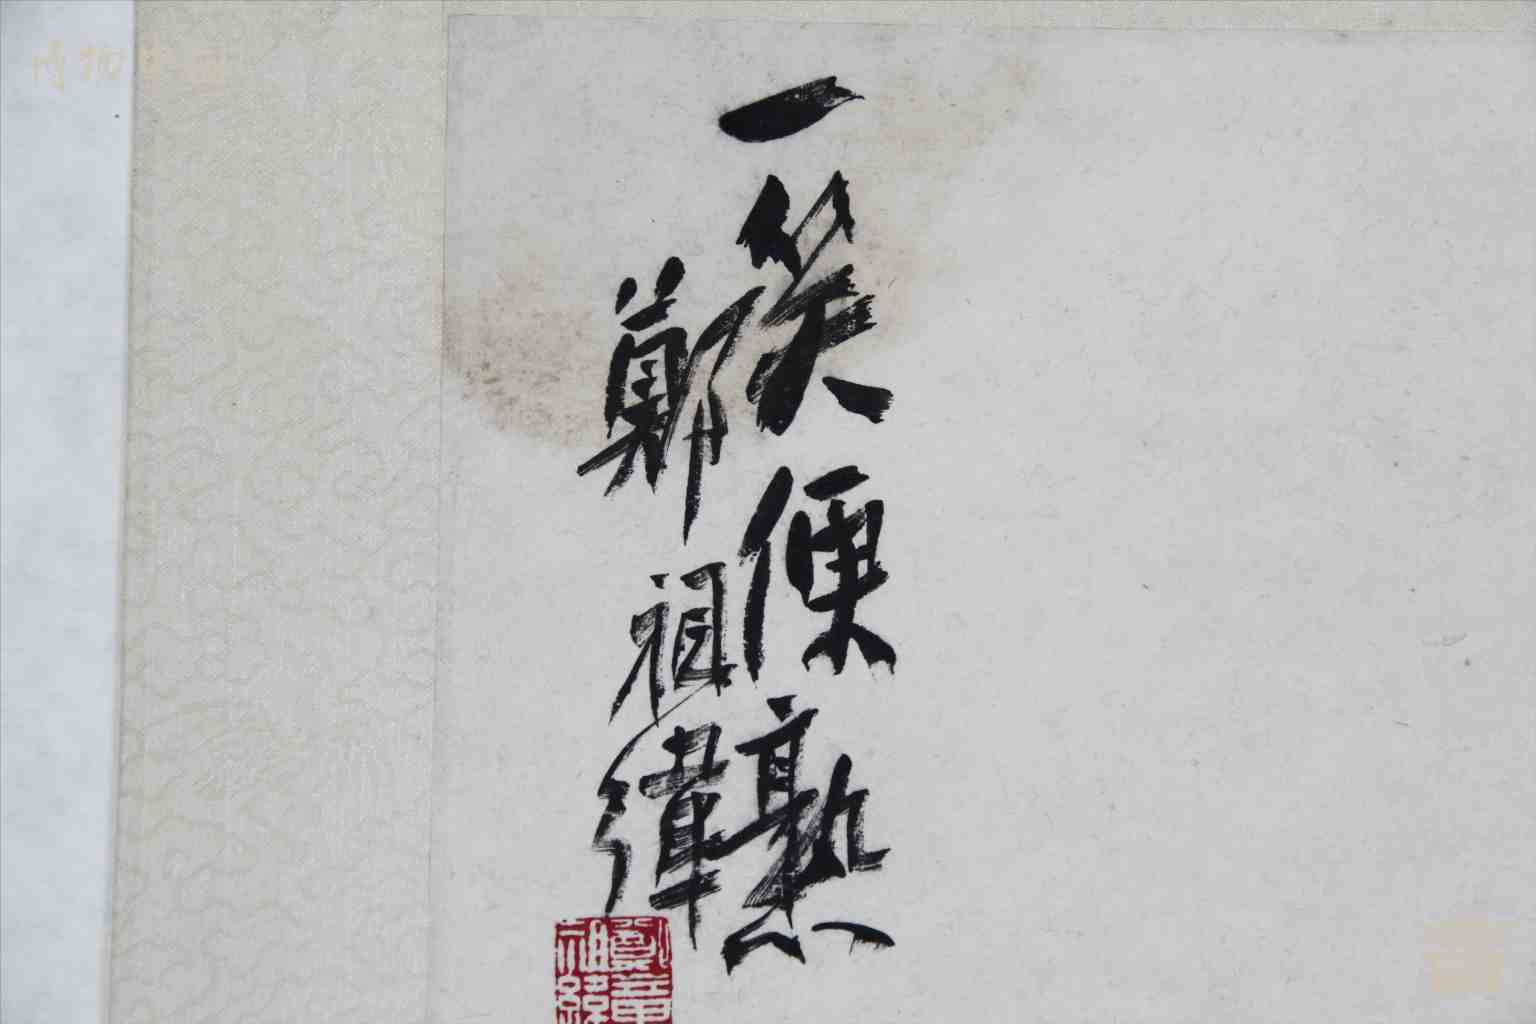 一笑便熟
鄭祖緯